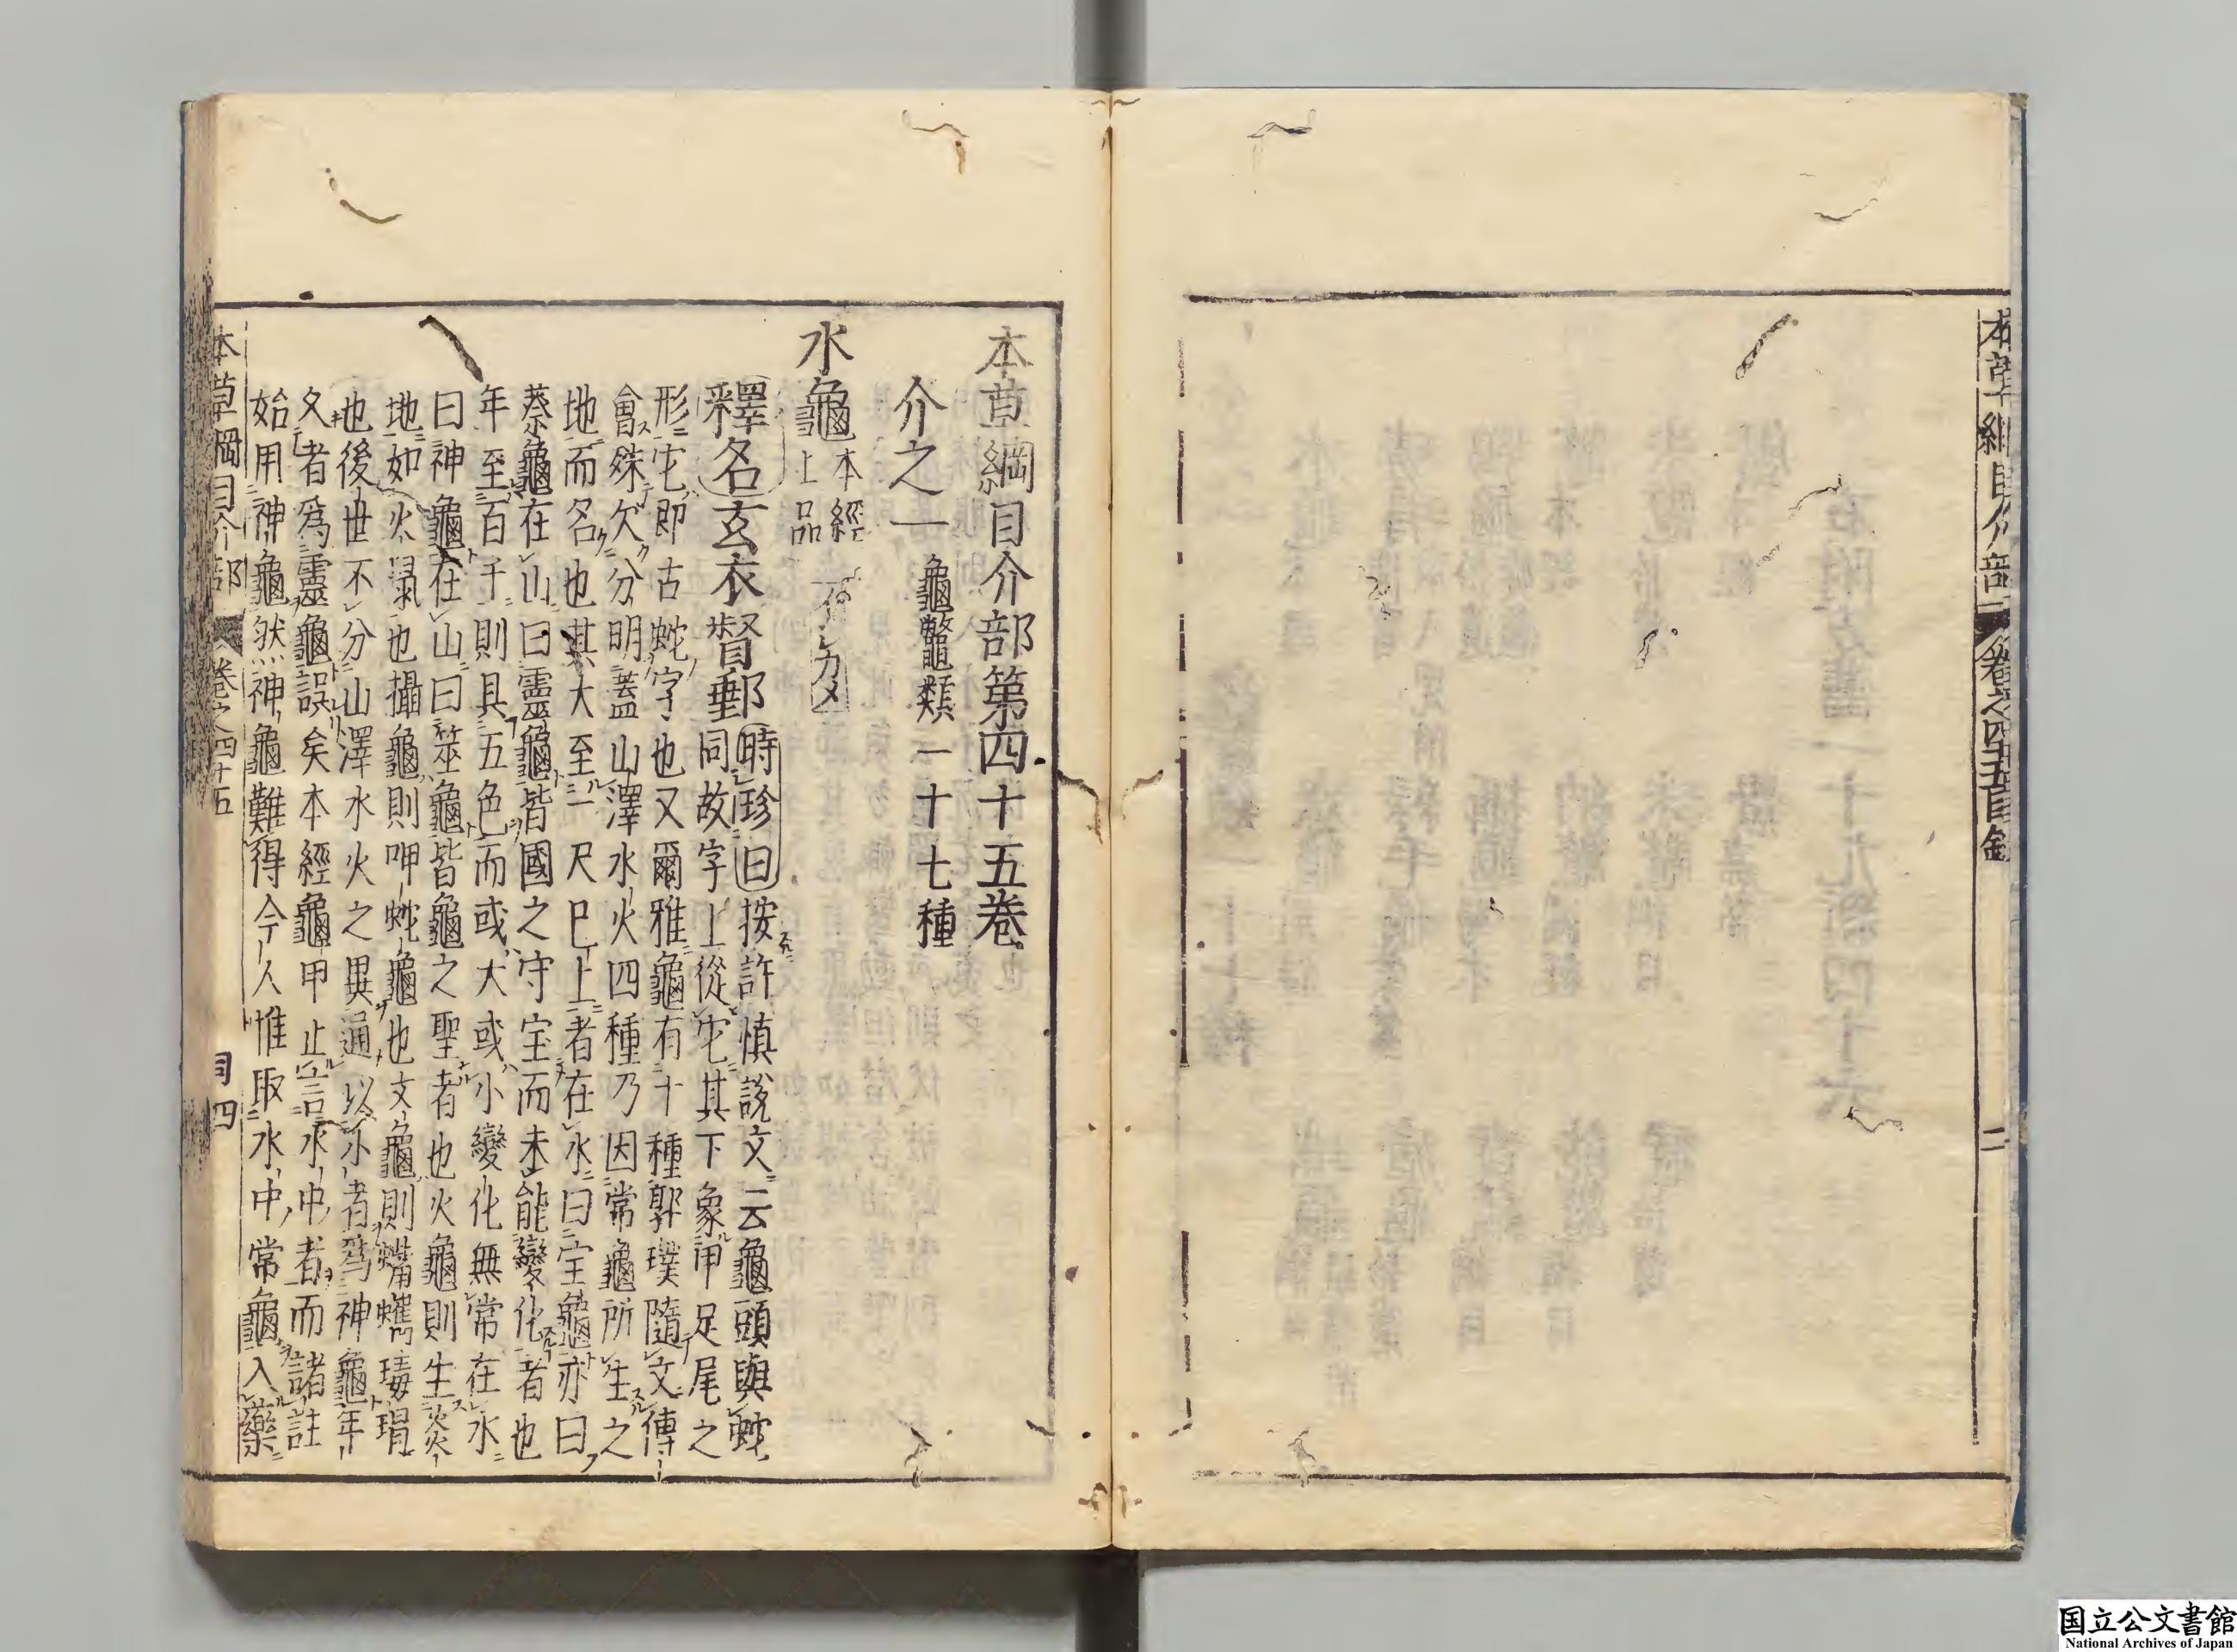 本草綱目介部 卷之四十五目錄 二
本草綱目介部第四十五卷
介之一 龜鼈類一十七種
水龜 本經上品 イシカメ
釋名 玄衣督郵 時珍曰按許慎說文云龜頭與蛇
同故字上從它其下象甲足尾之
形它即古蛇字也又爾雅龜有十種郭璞隨文傳
會殊欠分明蓋山澤水火四種乃因常龜所生之
地而名也其大至一尺已上者在水曰宝龜亦曰
蔡龜在山曰靈龜皆國之守宝而未能變化者也
年至百千則具五色而或大或小變化無常在水
曰神龜在山曰筮龜皆龜之聖者也火龜則生炎
地如火鼠也攝龜則呷蛇龜也文龜則蟕蠵瑇瑁
也後世不分山澤水火之異通以小者爲神龜年
久者爲靈龜誤矣本經龜甲止言水中者而諸註
始用神龜然神龜難得今人惟取水中常龜入藥
本草綱目介部 卷之四十五 目四
国立公文書館
National Archives of Japan